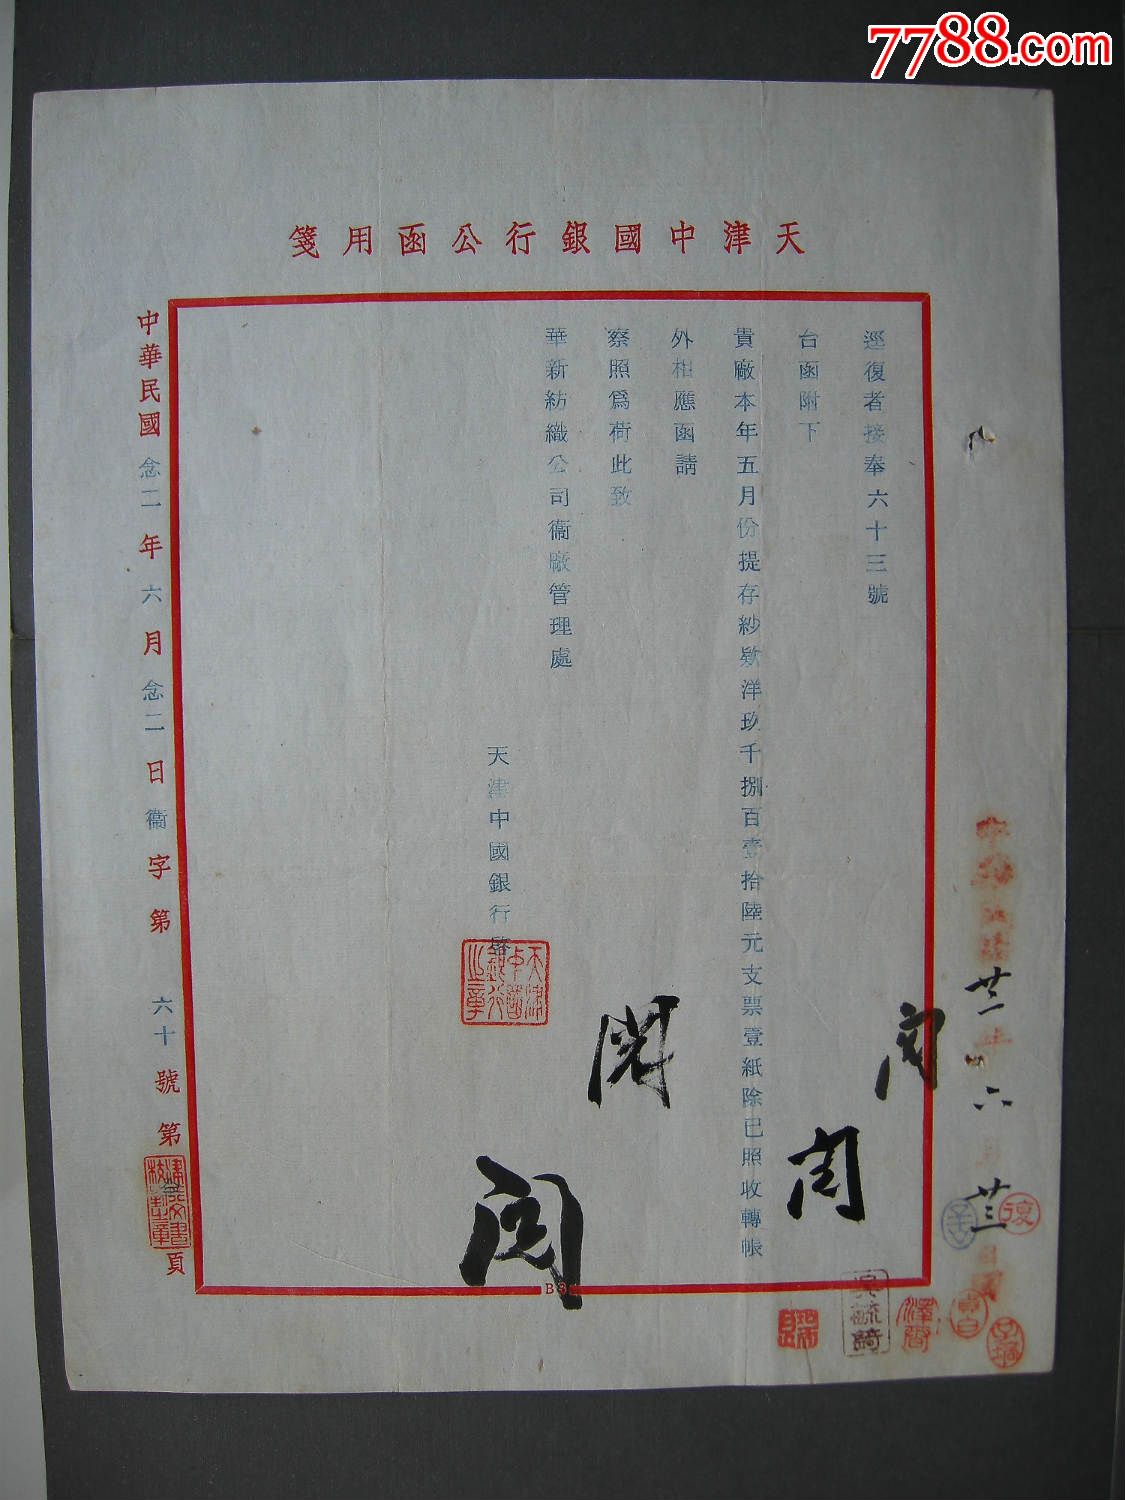 7788.com
天津中國銀行公函用箋
逕復者接奉六十三號
台函附下
貴廠本年五月份提存紗欵洋玖千捌百壹拾陸元支票壹紙除已照收轉帳
外相應函請
察照爲荷此致
華新紡織公司衞廠管理處
天津中國銀行啓
天津中國銀行之章
中華民國念二年六月念二日衞字第六十號第頁
閱
閱
閱
閱
廿二年六月廿三日
吳毓麟
澤啓
復
B